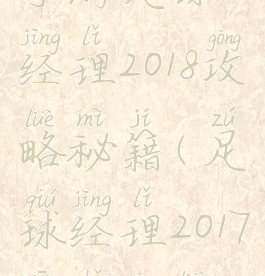 jīng lǐ gōng
经理2018攻
lüè mì jí zú
略秘籍(足
qiú jīng lǐ
球经理2017